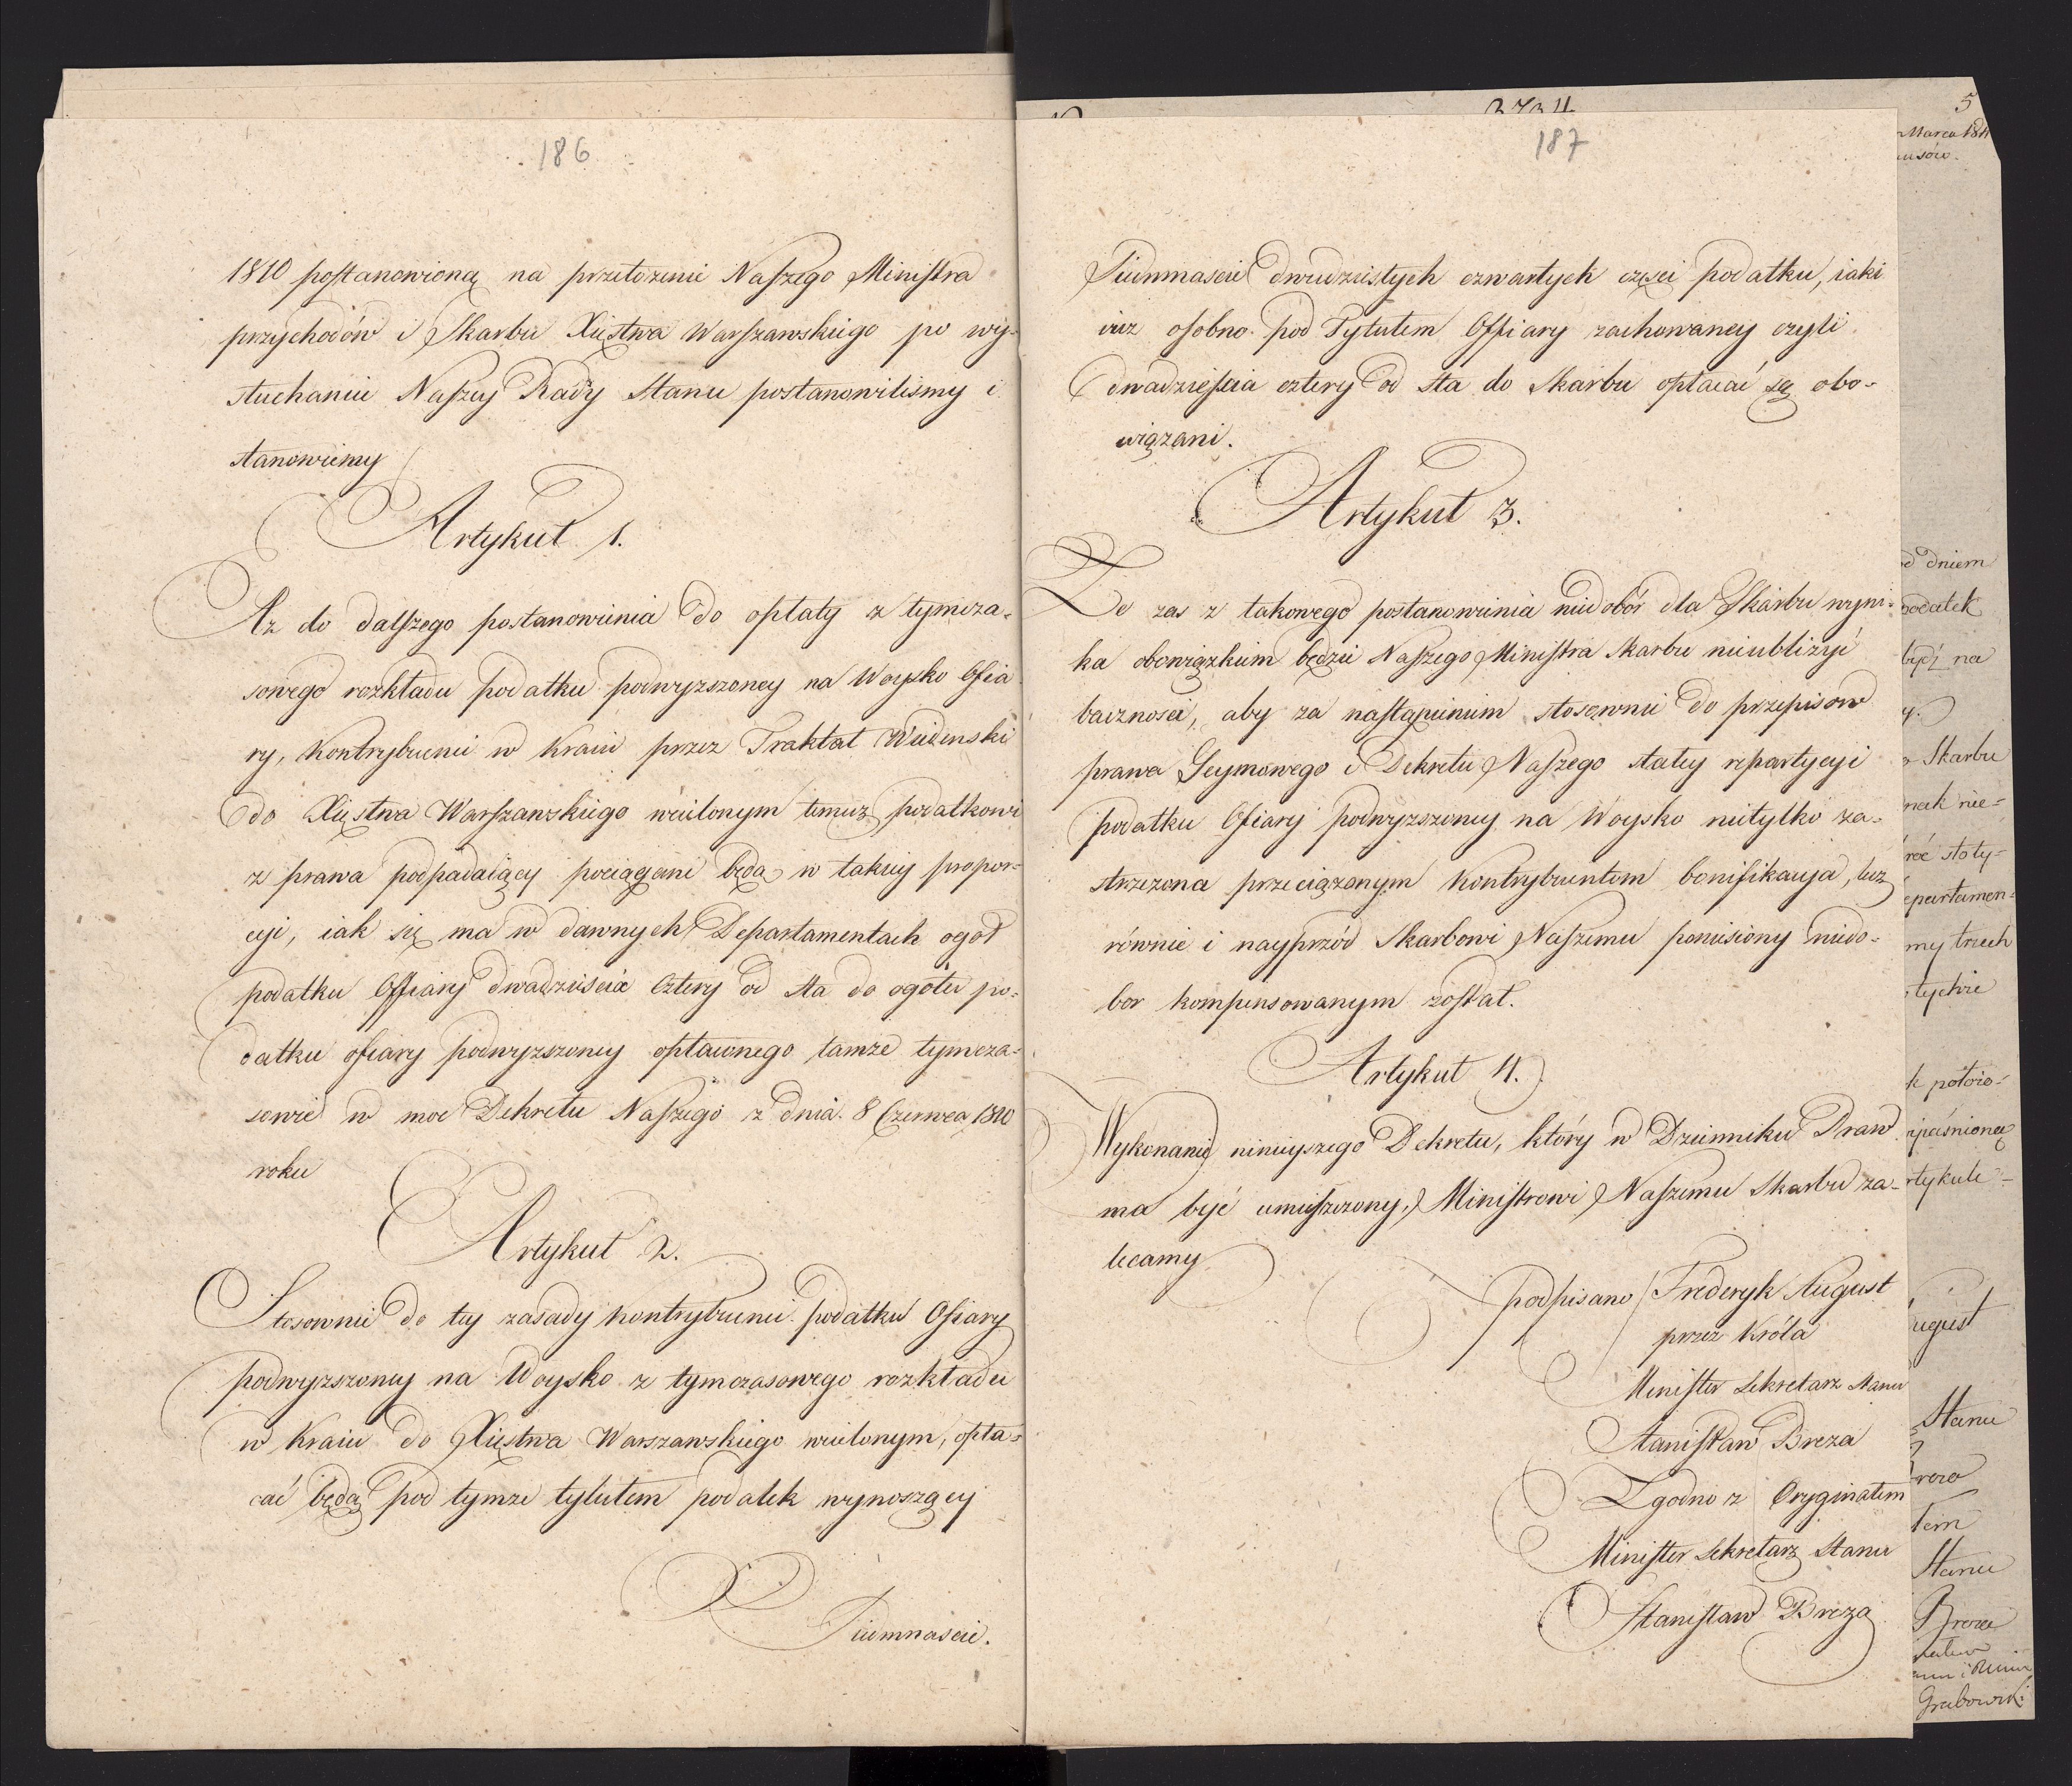 186
1810 postanowioną na przełożenie Naszego Ministra
przychodów i Skarbu Xięstwa Warszawskiego po wy-
słuchaniu Naszey Rady Stanu postanowiliśmy i
stanowiemy
Artykuł 1.
Aż do dalszego postanowienia do opłaty z tymcza-
sowego rozkładu podatku podwyzszoney na Woysko Ofia
ry, Kontrybuenci w Kraiu przez Traktat Wiedenski
do Xięstwa Warszawskiego wcielonym temuz podatkowi
z prawa podpadaiący pociągani będą w takiey propor-
cyi, iak się ma w dawnych Departamentach ogoł
podatku Offiary dwadzieścia cztery od sta do ogółu po-
datku ofiary podwyzszoney opłaconego tamże tymcza-
sowie w moc Dekretu Naszego z dnia 8 Czerwca 1810
roku
Artykuł 2.
Stosownie do tey zasady kontrybuenci podatku Ofiary
podwyzszoney na Woysko z tymczasowego rozkładu
w Kraiu do Xięstwa Warszawskiego wcielonym, opła-
cać będą pod tymze tytułem podatek wynoszący
Siedmnaście.
187
Siedmnaście dwudziestych czwartych części podatku, iaki
iuz osobno pod Tytułem Offiary zachowaney czyli
dwadzieścia cztery od sta do Skarbu opłacać są obo-
wiązani.
Artykuł 3.
Ze zas z takowego postanowienia niedobór dla Skarbu wyni-
ka obowiązkiem będzie Naszego Ministra Skarbu nieubliżyć
baczności, aby za nastąpieniem stosownie do przepisow
prawa Seymowego i Dekretu Naszego stałey repartycyi
podatku Ofiary podwyzszoney na Woysko nietylko za-
strzezona przeciązonym Kontrybuentom bonifikacya, lecz
równie i nayprzód Skarbowi Naszemu poniesiony niedo-
bor kompensowanym został.
Artykuł 4.
Wykonanie ninieyszego Dekretu, który w Dzienniku Praw
ma być umieszczony, Ministrowi Naszemu Skarbu za-
lecamy
podpisano Frederyk August
przez Króla
Minister Sekretarz Stanu
Stanisław Breza
Zgodno z Oryginałem
Minister Sekretarz Stanu
Stanisław Breza
5
Marca 1811
dniem
podatek
bydź na
Skarbu
nak nie-
stoty-
epartamen-
my trzech
tychże
k położo-
rtykule
ugust
Stanu
Stanu
Breza
Grabowski